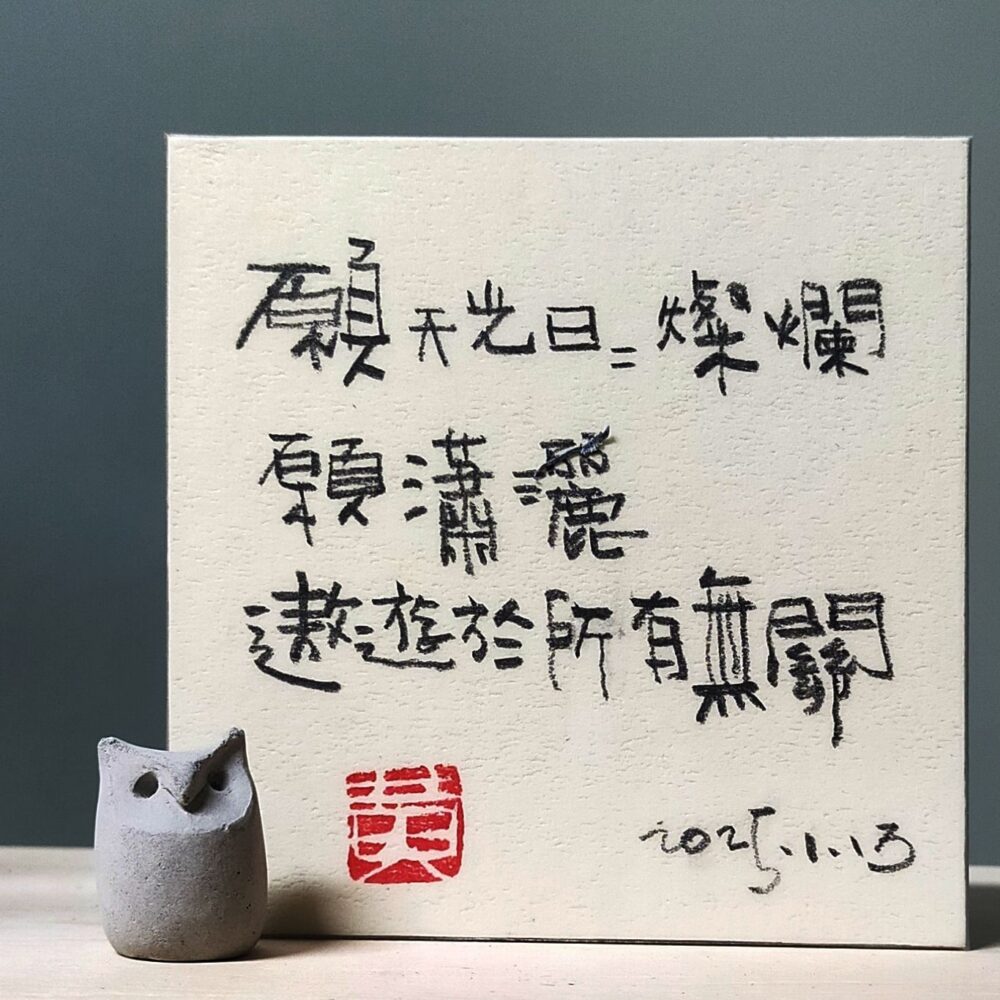 願天光日=燦爛
願瀟灑
遨遊於所有無關
2025.1.13